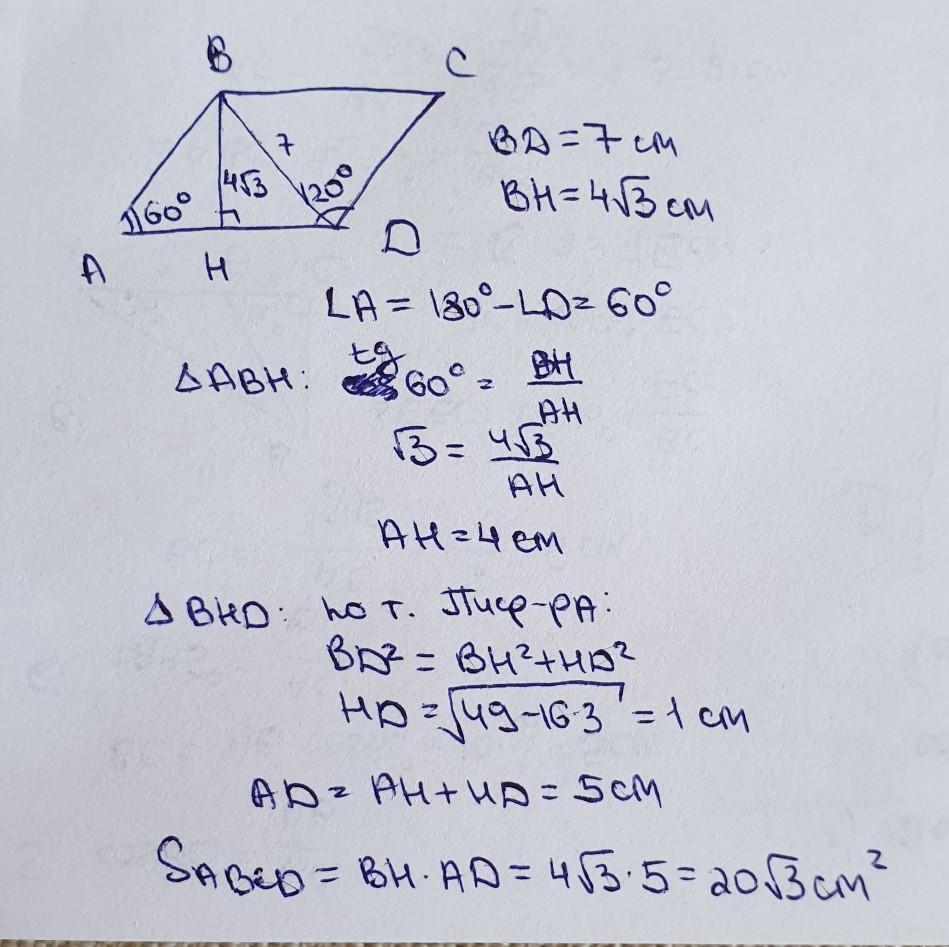 B C
7
4√3
60° 120°
A H D
BD = 7 см
BH = 4√3 см
∠A = 180° - ∠D = 60°
△ABH: tg 60° = BH/AH
√3 = 4√3/AH
AH = 4 см
△BHD: по т. Пиф-ра:
BD² = BH² + HD²
HD = √49-16·3 = 1 см
AD = AH + HD = 5 см
SABCD = BH · AD = 4√3 · 5 = 20√3 см²